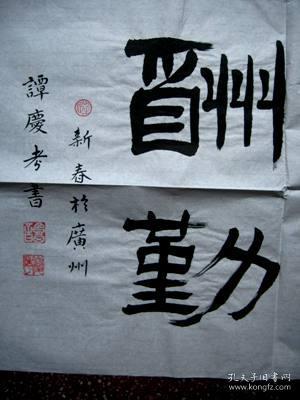 酬
勤
新春於廣州
譚慶考書
孔夫子旧书网
www.kongfz.com